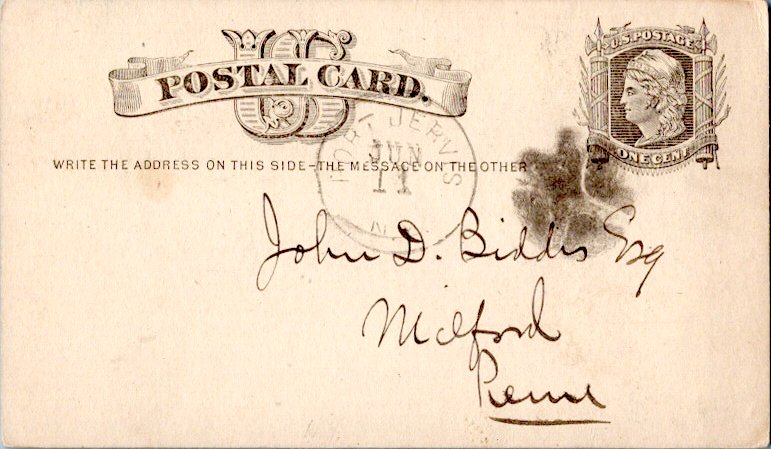 US
POSTAL CARD.
U.S. POSTAGE
ONE CENT
WRITE THE ADDRESS ON THIS SIDE-THE MESSAGE ON THE OTHER
PORT JERVIS
JUN
11
N.Y.
John D. Biddis Esq
Milford
Penna